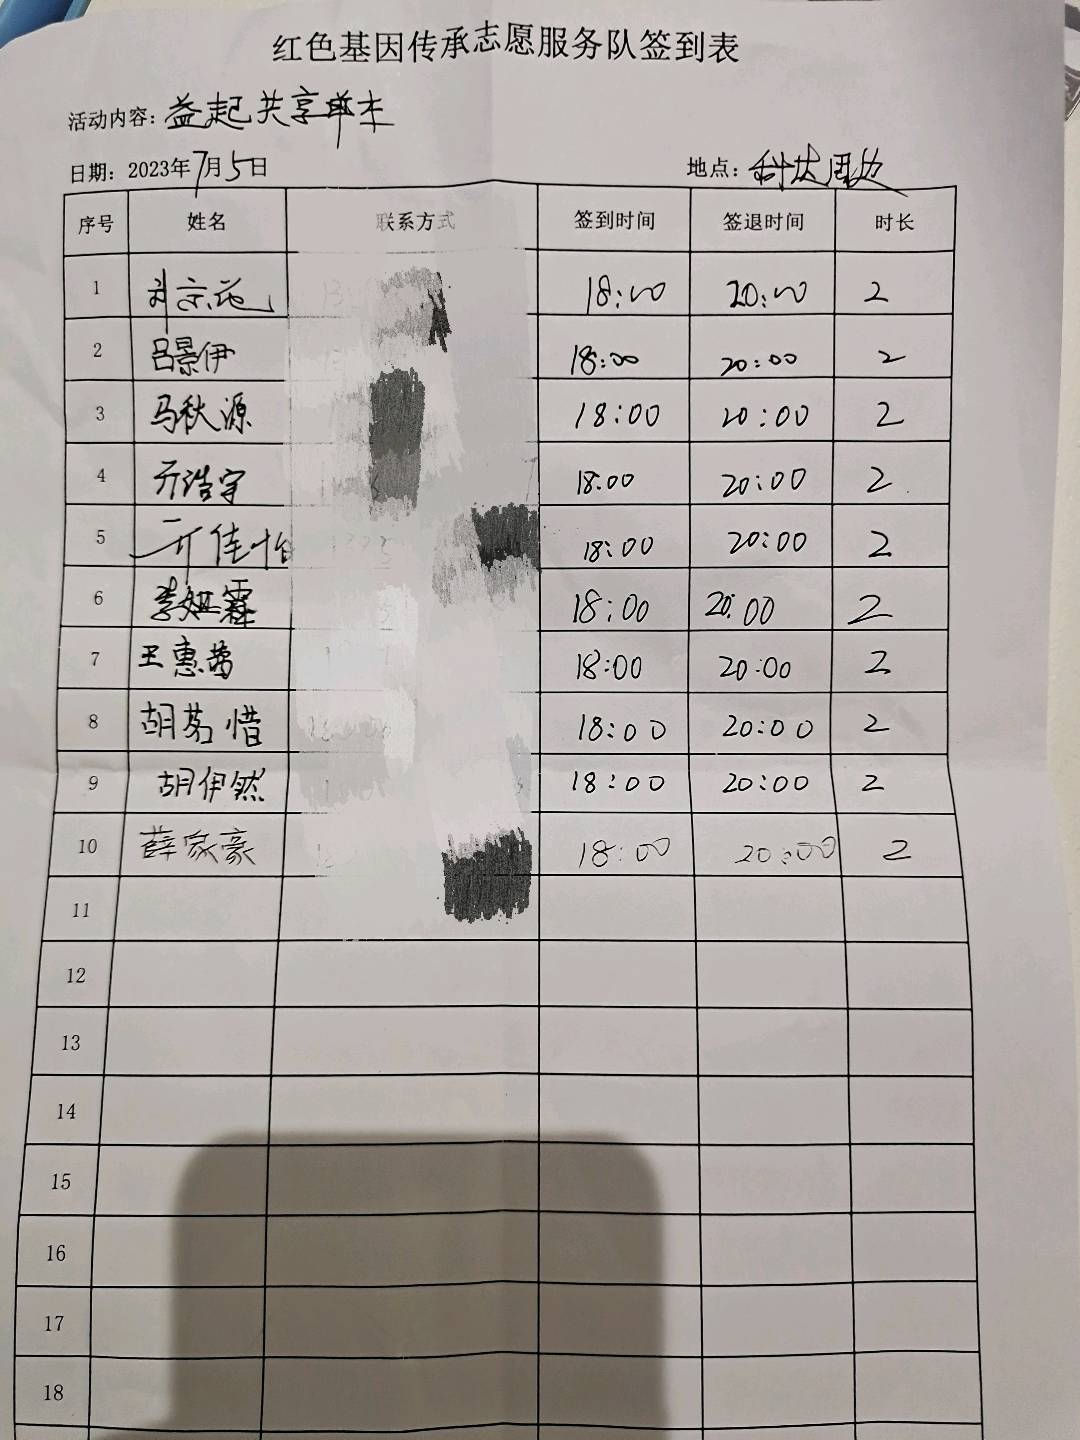 红色基因传承志愿服务队签到表
活动内容：益起共享单车
日期：2023年7月5日 地点：科技周边
序号 姓名 联系方式 签到时间 签退时间 时长
1 18:00 20:00 2
2 吕景伊 18:00 20:00 2
3 马秋源 18:00 20:00 2
4 亓浩宇 18:00 20:00 2
5 亓佳怡 18:00 20:00 2
6 18:00 20:00 2
7 王惠茜 18:00 20:00 2
8 胡茗惜 18:00 20:00 2
9 胡伊然 18:00 20:00 2
10 薛家豪 18:00 20:00 2
11
12
13
14
15
16
17
18